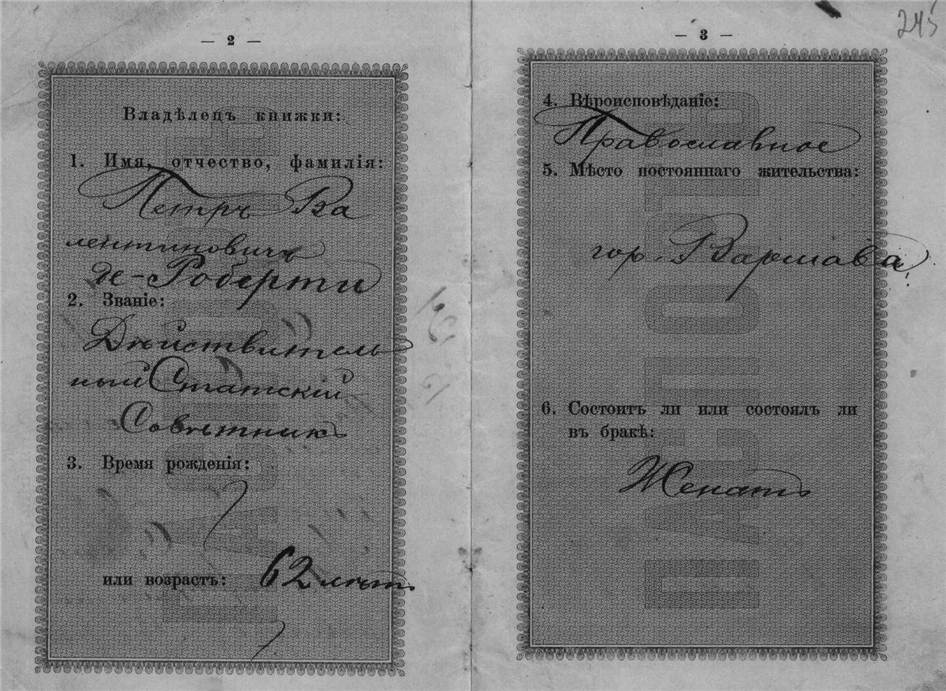 — 2 —
Владѣлецъ книжки:
1. Имя, отчество, фамилія:
Петръ Ва
лентиновичъ
де-Роберти
2. Званіе:
Дѣйствитель
ный Статскій
Совѣтникъ
3. Время рожденія:
или возрастъ: 62 лѣтъ
— 3 —
245
4. Вѣроисповѣданіе:
Православное
5. Мѣсто постояннаго жительства:
гор. Варшава
6. Состоитъ ли или состоялъ ли
въ бракѣ:
Женатъ
ПАСПОРТЪ